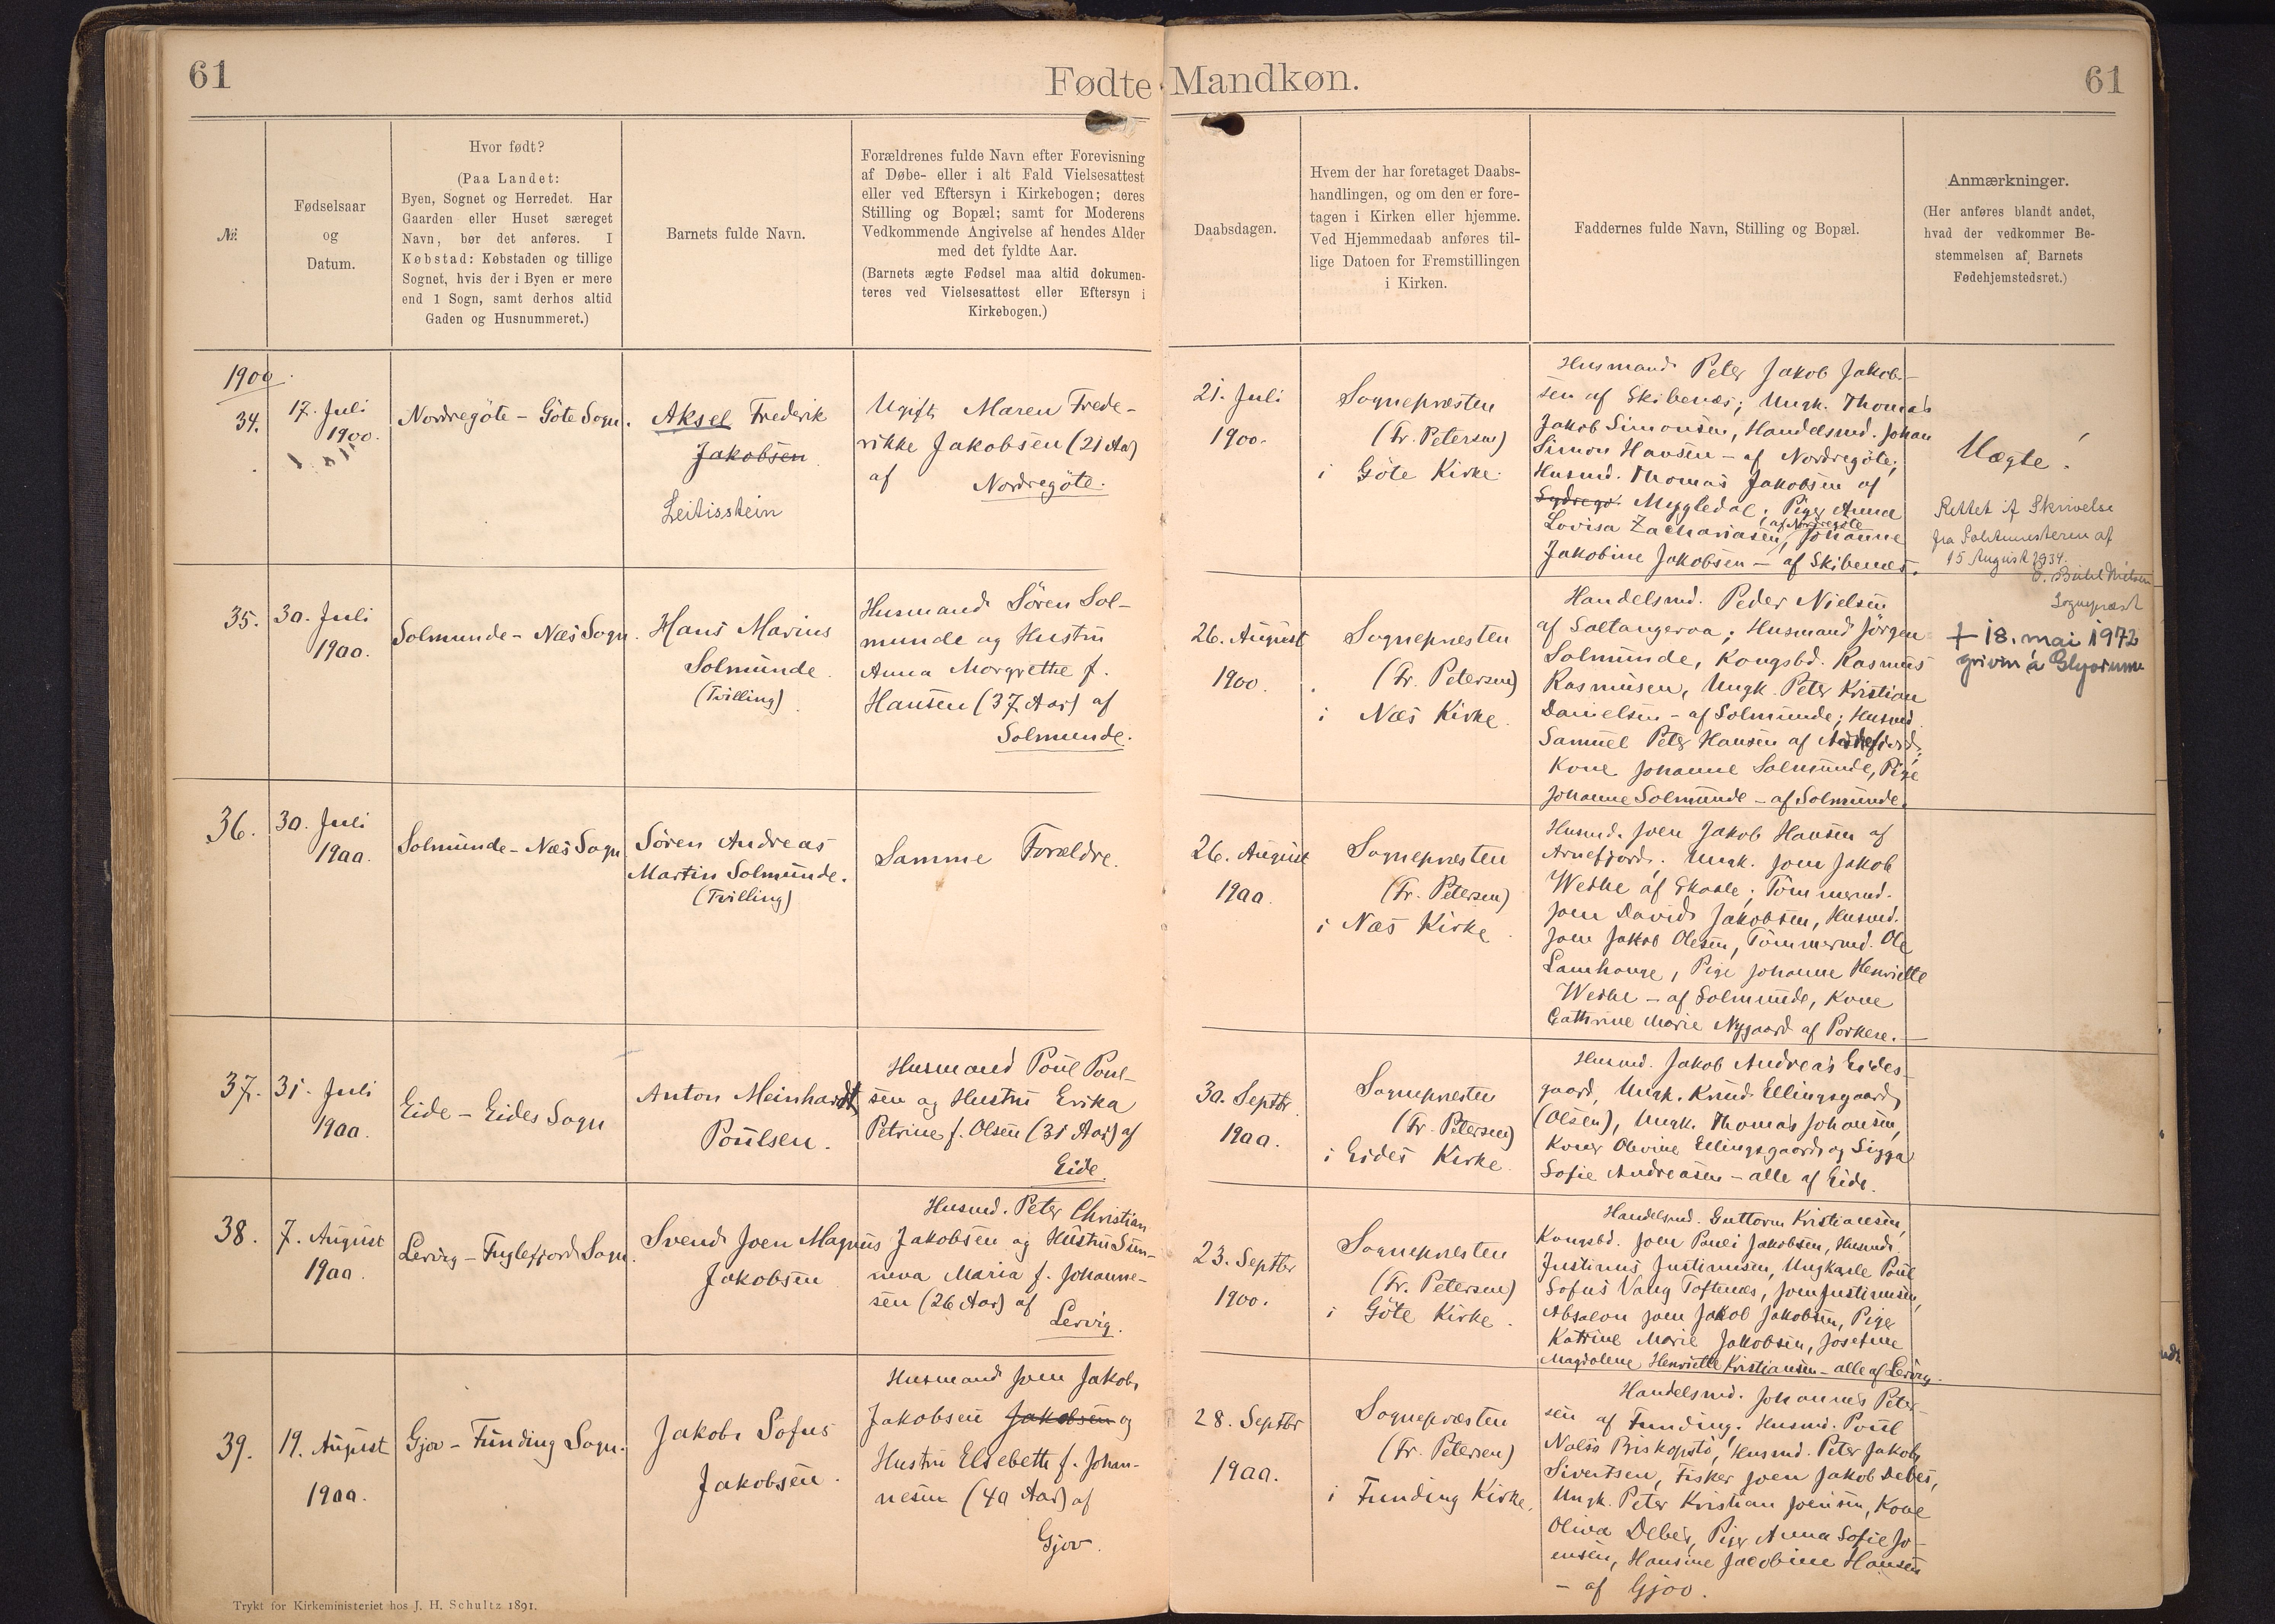 61
Fødte Mandkøn.
61
№.
Fødselsaar
og
Datum.
Hvor født?
(Paa Landet:
Byen, Sognet og Herredet. Har
Gaarden eller Huset særeget
Navn, bør det anføres. I
Købstad: Købstaden og tillige
Sognet, hvis der i Byen er mere
end 1 Sogn, samt derhos altid
Gaden og Husnummeret.)
Barnets fulde Navn.
Forældrenes fulde Navn efter Forevisning
af Døbe- eller i alt Fald Vielsesattest
eller ved Eftersyn i Kirkebogen; deres
Stilling og Bopæl; samt for Moderens
Vedkommende Angivelse af hendes Alder
med det fyldte Aar.
(Barnets ægte Fødsel maa altid dokumen-
teres ved Vielsesattest eller Eftersyn i
Kirkebogen.)
Daabsdagen.
Hvem der har foretaget Daabs-
handlingen, og om den er fore-
tagen i Kirken eller hjemme.
Ved Hjemmedaab anføres til-
lige Datoen for Fremstillingen
i Kirken.
Faddernes fulde Navn, Stilling og Bopæl.
Anmærkninger.
(Her anføres blandt andet,
hvad der vedkommer Be-
stemmelsen af Barnets
Fødehjemstedsret.)
1900.
34.
17. Juli
1900.
Nordregöte - Göte Sogn.
Aksel Frederik
Jakobsen
Leitisstein
Ugift Maren Frede-
rikke Jakobsen (21 Aar)
af Nordregöte.
21. Juli
1900.
Sognepræsten
(Fr. Petersen)
i Göte Kirke.
Husmand Peter Jakob Jakob-
sen af Skibenæs; Ungk. Thomas
Jakob Simonsen, Handelsmd. Johan
Simon Hansen - af Nordregöte;
Husmd. Thomas Jakobsen af
Sydregö Myggledal; Piger Anna
Lovisa Zachariasen, (af Nordregöte) Johanne
Jakobine Jakobsen - af Skibenæs.
Uægte.
Rettet if Skrivelse
fra Justitsministeren af
15 August 1934.
Sognepræst
35.
30. Juli
1900.
Solmunde - Næs Sogn.
Hans Marius
Solmunde.
(Tvilling)
Husmand Sören Sol-
munde og Hustru
Anna Morgrethe f.
Hansen (37 Aar) af
Solmunde.
26. August
1900.
Sognepresten
(Fr. Petersen)
i Næs Kirke.
Handelsmd. Peder Nielsen
af Saltangeraa; Husmand Jörgen
Solmunde, Kongsbd. Rasmus
Rasmusen, Ungk. Peter Kristian
Danielsen - af Solmunde; Husmd.
Samuel Peter Hansen af
Kone Johanne Solmunde, Pige
Johanne Solmunde - af Solmunde.
+ 18. mai 1972
grivin á Glyvrum
36.
30. Juli
1900.
Solmunde - Næs Sogn
Sören Andreas
Martin Solmunde.
(Tvilling)
Samme Forældre.
26. August
1900.
Sognepresten
(Fr. Petersen)
i Næs Kirke.
Husmd. Joen Jakob Hansen af
Arnefjord; Ungk. Joen Jakob
Weihe af Skaale; Tömmermd.
Joen David Jakobsen, Husmd.
Joen Jakob Olesen, Tömmermd. Ole
Lamhauge, Pige Johanne Henriette
Weihe - af Solmunde, Kone
Cathrine Marie Nygaard af Porkere.
37.
31. Juli
1900.
Eide - Eides Sogn
Anton Meinhardt
Poulsen.
Husmand Poul Poul-
sen og Hustru Erika
Petrine f. Olsen (31 Aar) af
Eide.
30. Septbr.
1900.
Sognepresten
(Fr. Petersen)
i Eides Kirke.
Husmd. Jakob Andreas Eides-
gaard, Ungk. Knud Ellingsgaard
(Olsen), Ungk. Thomas Johansen,
Koner Olevine Ellingsgaard og Sigga
Sofie Andreasen - alle af Eide.
38.
7. August
1900.
Lervig - Fuglefjord Sogn.
Svend Joen Magnus
Jakobsen
Husmd. Peter Christian
Jakobsen og Hustru Sun-
neva Maria f. Johanne-
sen (26 Aar) af
Lervig.
23. Septbr
1900.
Sognepresten
(Fr. Petersen)
i Göte Kirke.
Handelsmd. Guttorm Kristiansen,
Kongsbd. Joen Pauli Jakobsen, Husmd.
Justinus Justinusen, Ungkarle Poul
Sofus Vang Toftenæs, Joen Justinusen,
Absalon Joen Jakob Jakobsen, Piger
Katrine Marie Jakobsen, Josefine
Magdalene Henriette Kristiansen - alle af Lervig.
39.
19. August
1900.
Gjov - Funding Sogn.
Jakob Sofus
Jakobsen.
Husmand Joen Jakob
Jakobsen Jakobsen og
Hustru Elsebeth f. Johan-
nesen (40 Aar) af
Gjov.
28. Septbr
1900.
Sognepræsten
(Fr. Petersen)
i Funding Kirke.
Handelsmd. Johannes Peter-
sen af Funding; Husmd. Poul
Nolsö Biskopstö, Husmd. Peter Jakob
Sivertsen, Fisker Joen Jakob Debes,
Ungk. Peter Kristian Joensen, Kone
Oliva Debes, Piger Anna Sofie Jo-
ensen, Hansine Jacobine Hansen
- af Gjov.
Trykt for Kirkeministeriet hos J. H. Schultz 1891.